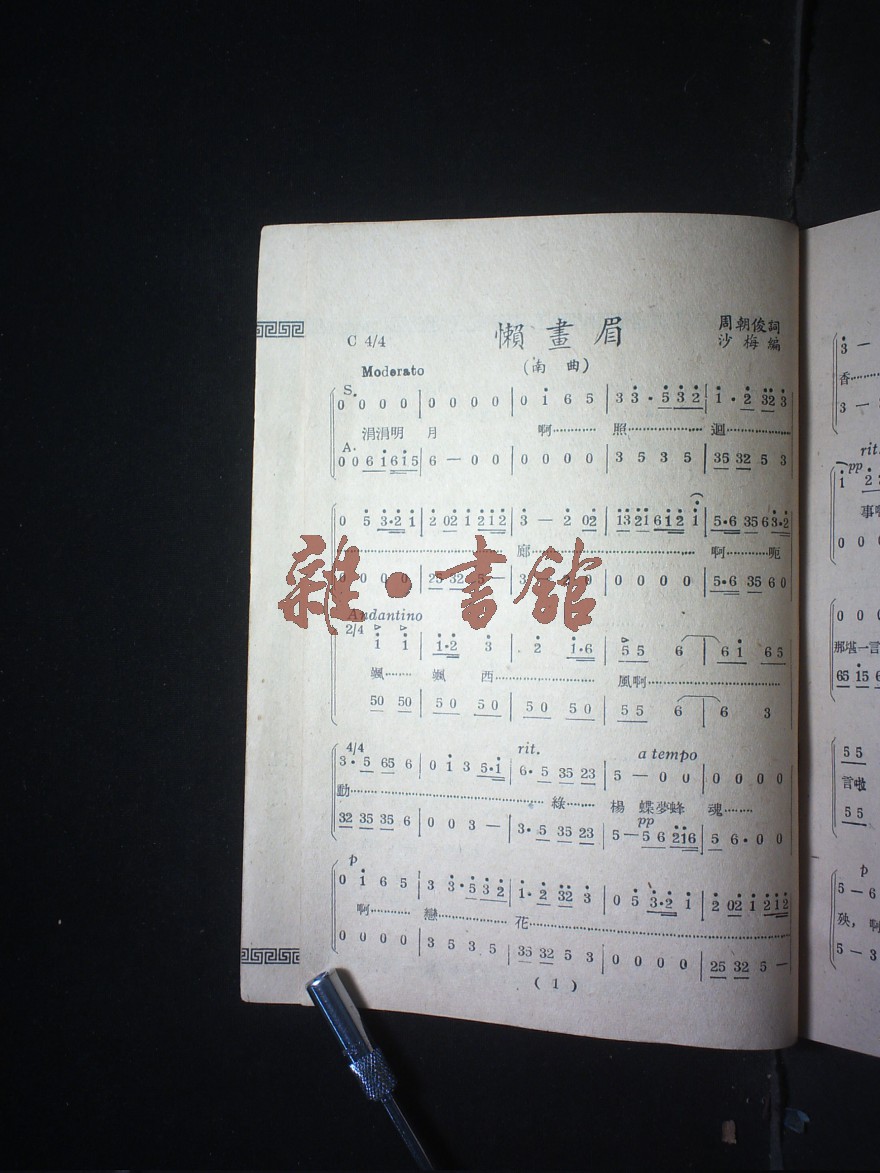 懶畫眉
周朝俊詞
C 4/4
沙梅編
(南曲)
Moderato
S.
0 0 0 0 | 0 0 0 0 | 0 i 6 5 | 3 3·5 3 2 | 1·2 32 3
涓涓明 月 啊………… 照………………… 迴………………
A.
0 0 6 i 6i5 | 6 — 0 0 | 0 0 0 0 | 3 5 3 5 | 35 32 5 3
0 5 3·2 1 | 2 02 1 212 | 3 — 2 02 | 1321 612 1 | 5·6 35 6 3·2
廊………………… 啊…………呃
0 0 0 0 | 25 32 5 — | 0 0 0 0 | 5·6 35 6 0
雜·書館
Andantino
2/4
1 1 | 1·2 3 | 2 1·6 | 5 5 6 | 6 i 6 5
颯…… 颯 西………………… 風啊…………………
50 50 | 50 50 | 50 50 | 5 5 6 | 6 3
4/4
rit.
a tempo
3·5 65 6 | 0 i 3 5·i | 6·5 35 23 | 5 — 0 0 | 0 0 0 0
動………………… 綠…… 楊 蝶夢蜂 魂……
pp
32 35 35 6 | 0 0 3 — | 3·5 35 23 | 5 — 5 6 216 | 5 6·0 0
p
0 i 6 5 | 3 3·5 3 2 | 1·2 32 3 | 0 5 3·2 1 | 2 02 1 212
啊………… 戀………………… 花…………………
0 0 0 0 | 3 5 3 5 | 35 32 5 3 | 0 0 0 0 | 25 32 5 —
(1)
3 —
香
3 —
rit.
pp
事
0 0 0
0 0 0
那堪一言
65 15
5 5
言啦
5 5
p
5 — 6
殃，啊
5 — 3